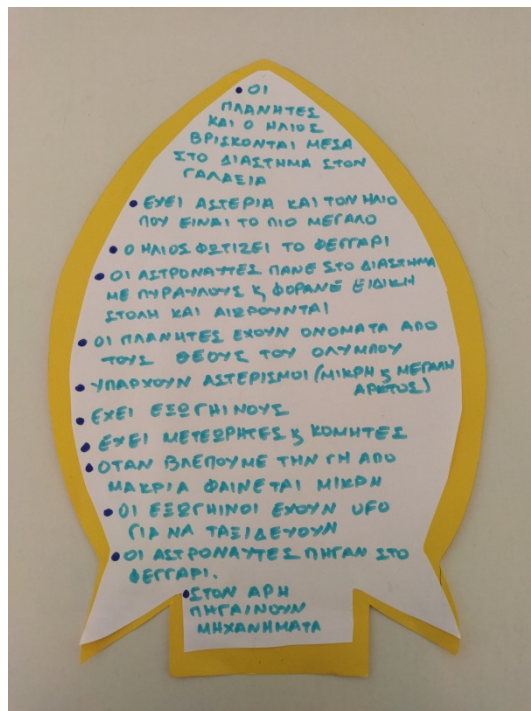 • ΟΙ
ΠΛΑΝΗΤΕΣ
ΚΑΙ Ο ΗΛΙΟΣ
ΒΡΙΣΚΟΝΤΑΙ ΜΕΣΑ
ΣΤΟ ΔΙΑΣΤΗΜΑ ΣΤΟΝ
ΓΑΛΑΞΙΑ
• ΕΧΕΙ ΑΣΤΕΡΙΑ ΚΑΙ ΤΟΝ ΗΛΙΟ
ΠΟΥ ΕΙΝΑΙ ΤΟ ΠΙΟ ΜΕΓΑΛΟ
• Ο ΗΛΙΟΣ ΦΩΤΙΖΕΙ ΤΟ ΦΕΓΓΑΡΙ
• ΟΙ ΑΣΤΡΟΝΑΥΤΕΣ ΠΑΝΕ ΣΤΟ ΔΙΑΣΤΗΜΑ
ΜΕ ΠΥΡΑΥΛΟΥΣ ϗ ΦΟΡΑΝΕ ΕΙΔΙΚΗ
ΣΤΟΛΗ ΚΑΙ ΑΙΩΡΟΥΝΤΑΙ
• ΟΙ ΠΛΑΝΗΤΕΣ ΕΧΟΥΝ ΟΝΟΜΑΤΑ ΑΠΟ
ΤΟΥΣ ΘΕΟΥΣ ΤΟΥ ΟΛΥΜΠΟΥ
• ΥΠΑΡΧΟΥΝ ΑΣΤΕΡΙΣΜΟΙ (ΜΙΚΡΗ ϗ ΜΕΓΑΛΗ
ΑΡΚΤΟΣ)
• ΕΧΕΙ ΕΞΩΓΗΙΝΟΥΣ
• ΕΧΕΙ ΜΕΤΕΩΡΗΤΕΣ ϗ ΚΟΜΗΤΕΣ
• ΟΤΑΝ ΒΛΕΠΟΥΜΕ ΤΗΝ ΓΗ ΑΠΟ
ΜΑΚΡΙΑ ΦΑΙΝΕΤΑΙ ΜΙΚΡΗ
• ΟΙ ΕΞΩΓΗΙΝΟΙ ΕΧΟΥΝ UFO
ΓΙΑ ΝΑ ΤΑΞΙΔΕΥΟΥΝ
• ΟΙ ΑΣΤΡΟΝΑΥΤΕΣ ΠΗΓΑΝ ΣΤΟ
ΦΕΓΓΑΡΙ.
• ΣΤΟΝ ΑΡΗ
ΠΗΓΑΙΝΟΥΝ
ΜΗΧΑΝΗΜΑΤΑ